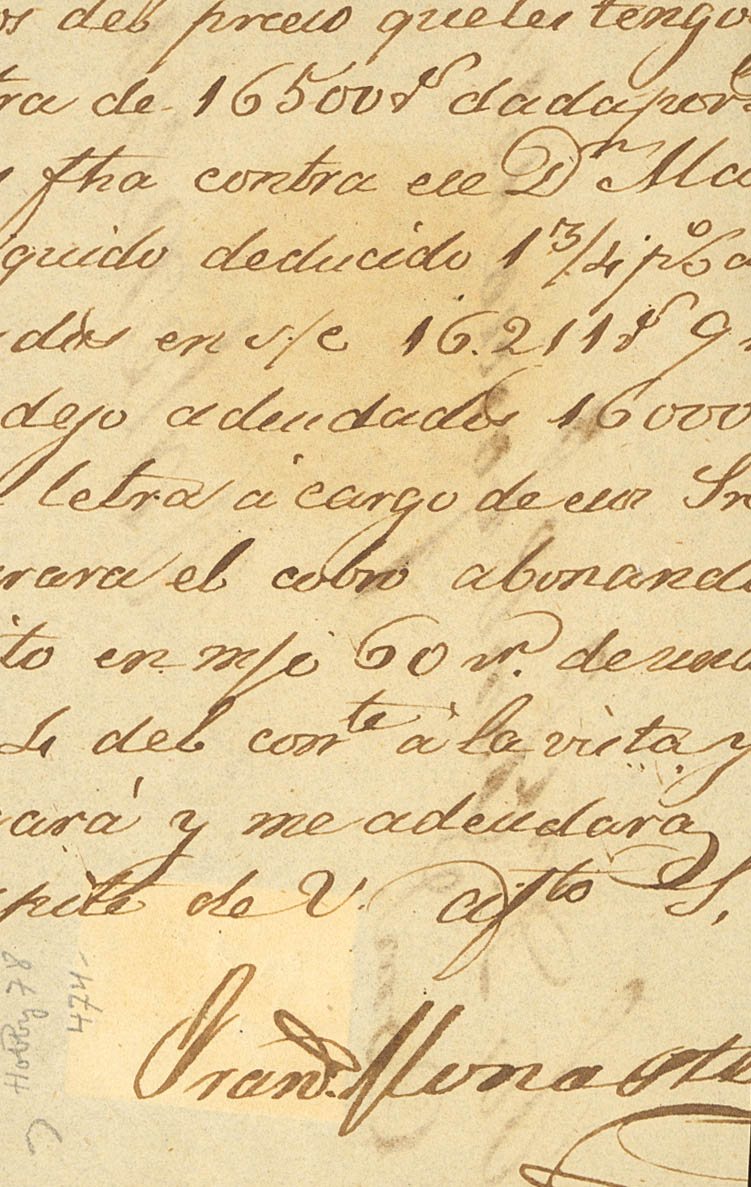 os del precio que les tengo
tra de 16500 rs dada por
fha contra ese Dn Ma
iquido deducido 1 3/4 p% a
dos en s/c 16.211 rs 9
dejo adeudados 16000
letra á cargo de esos Sre
rara el cobro abonand
ito en m/c 60 de una
4 del corrte á la vista y
ará y me adeudara
pite de V. afsto S.
Frando. Monaste
Hobby 78
474-